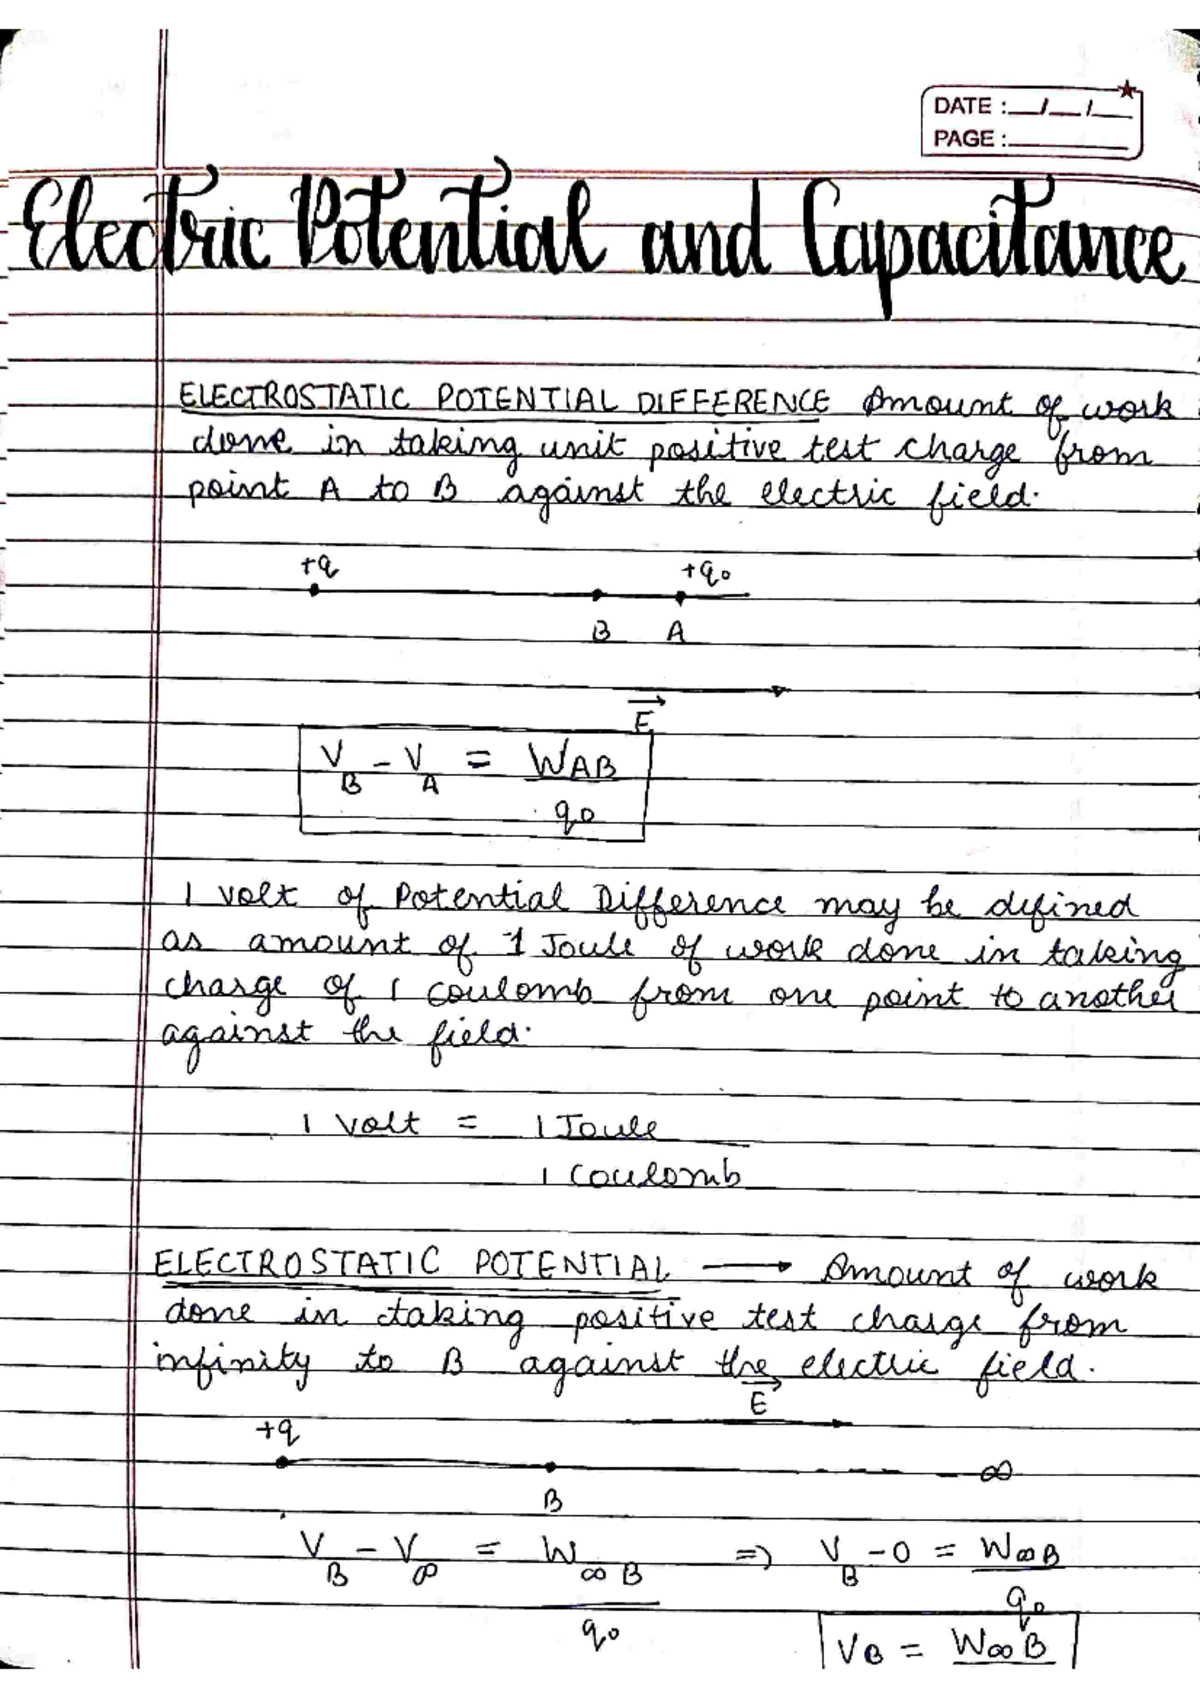 DATE :__/__/__
PAGE :______
Electric Potential and Capacitance
ELECTROSTATIC POTENTIAL DIFFERENCE Amount of work
done in taking unit positive test charge from
point A to B against the electric field.
+q +q₀
B A
E→
V_B - V_A = W_AB
q₀
1 volt of Potential Difference may be defined
as amount of 1 Joule of work done in taking
charge of 1 coulomb from one point to another
against the field.
1 Volt = 1 Joule
1 Coulomb
ELECTROSTATIC POTENTIAL → Amount of work
done in taking positive test charge from
infinity to B against the electric field.
E→
+q
∞
B
V_B - V_∞ = W_∞B ⇒ V_B - 0 = W_∞B
q₀ q₀
V_B = W_∞B